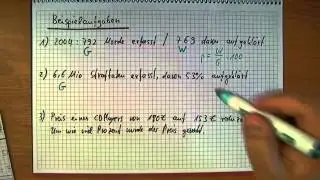 Beispielaufgaben
1) 2004: 792 Morde erfasst / 769 davon aufgeklärt
G W p = W/G · 100
2) 6,6 Mio Straftaten erfasst, davon 53% aufgeklärt
G
3) Preis eines CD Players von 180 € auf 153 €
Um wie viel Prozent wurde der Preis gesenkt